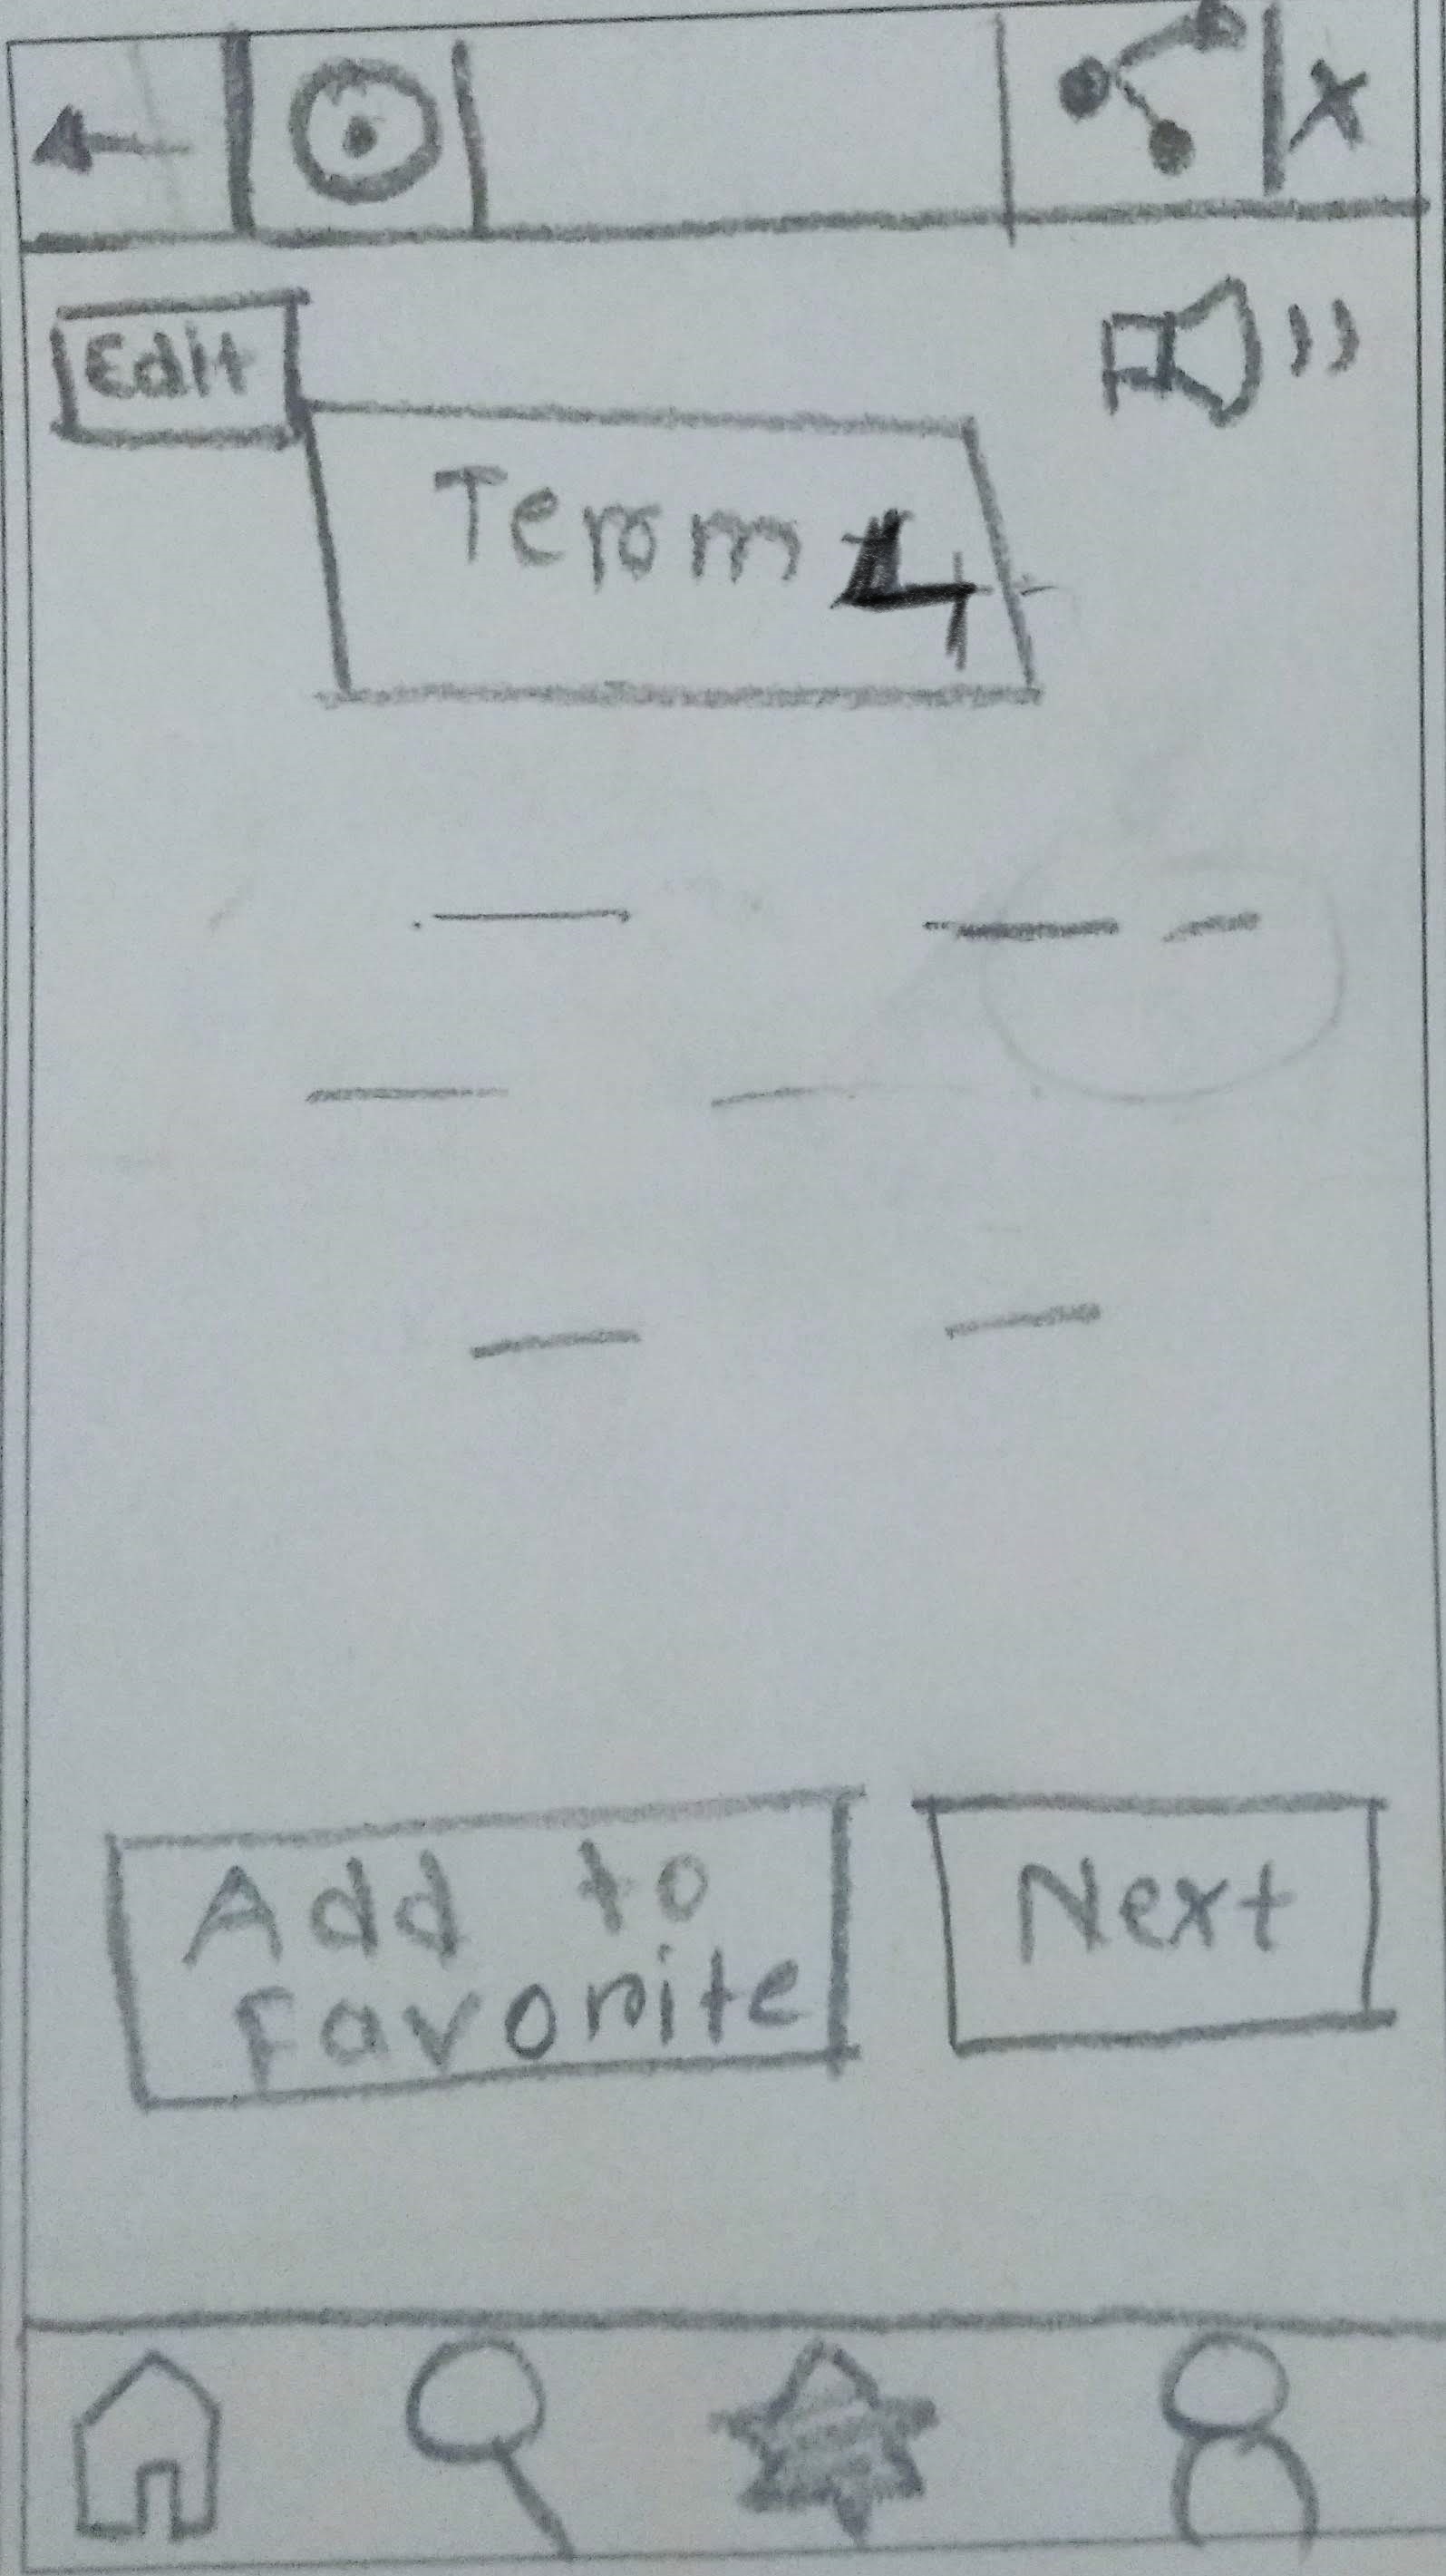 Edit
Term 4
Add to
Favorite
Next